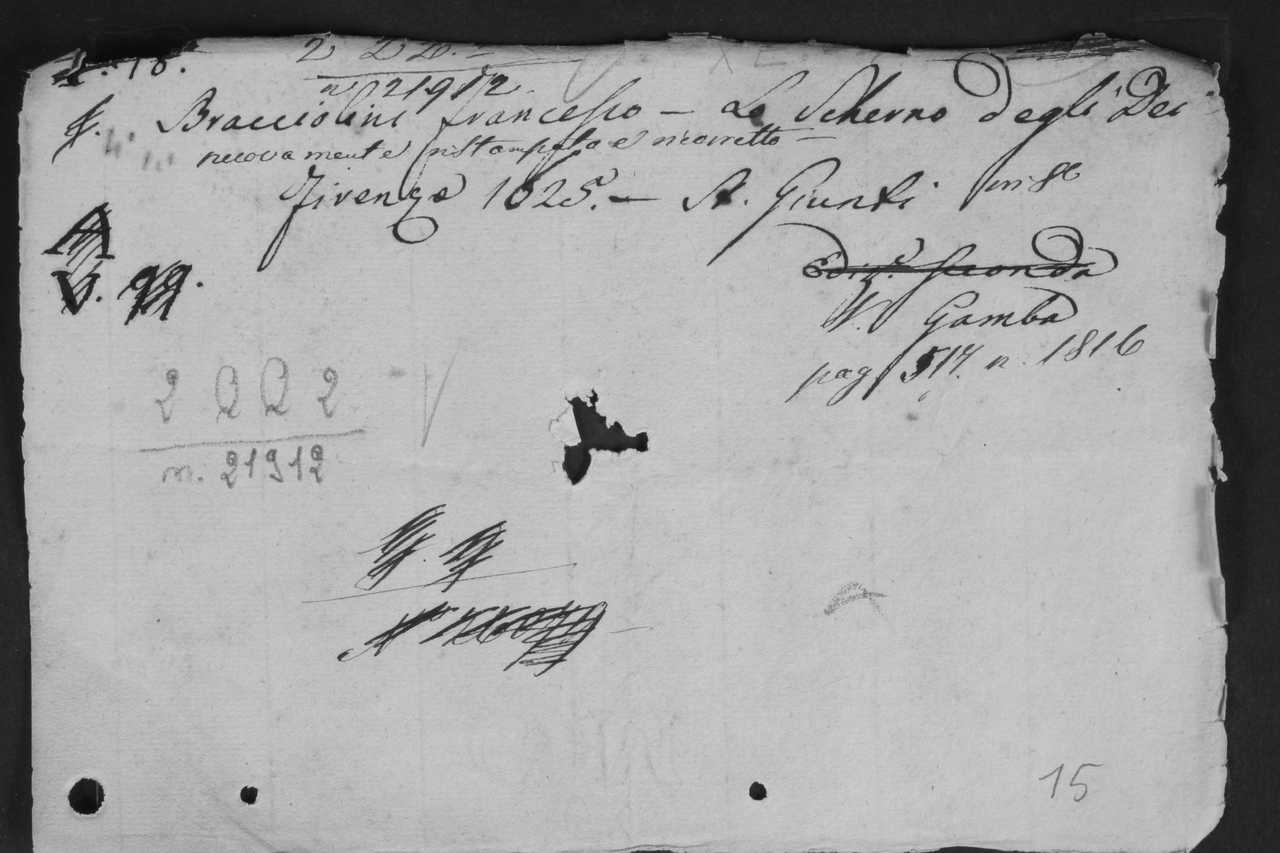 2 2 2. -
n. 21912.
f. Bracciolini Francesco — Lo Scherno degli Dei
nuovamente ristampato e ricorretto —
Firenze 1625. — A. Giunti in 8º
Ediz.e Seconda
V. Gamba
pag 517. n. 1816
V. 99.
2 2 2 2
n. 21912
15